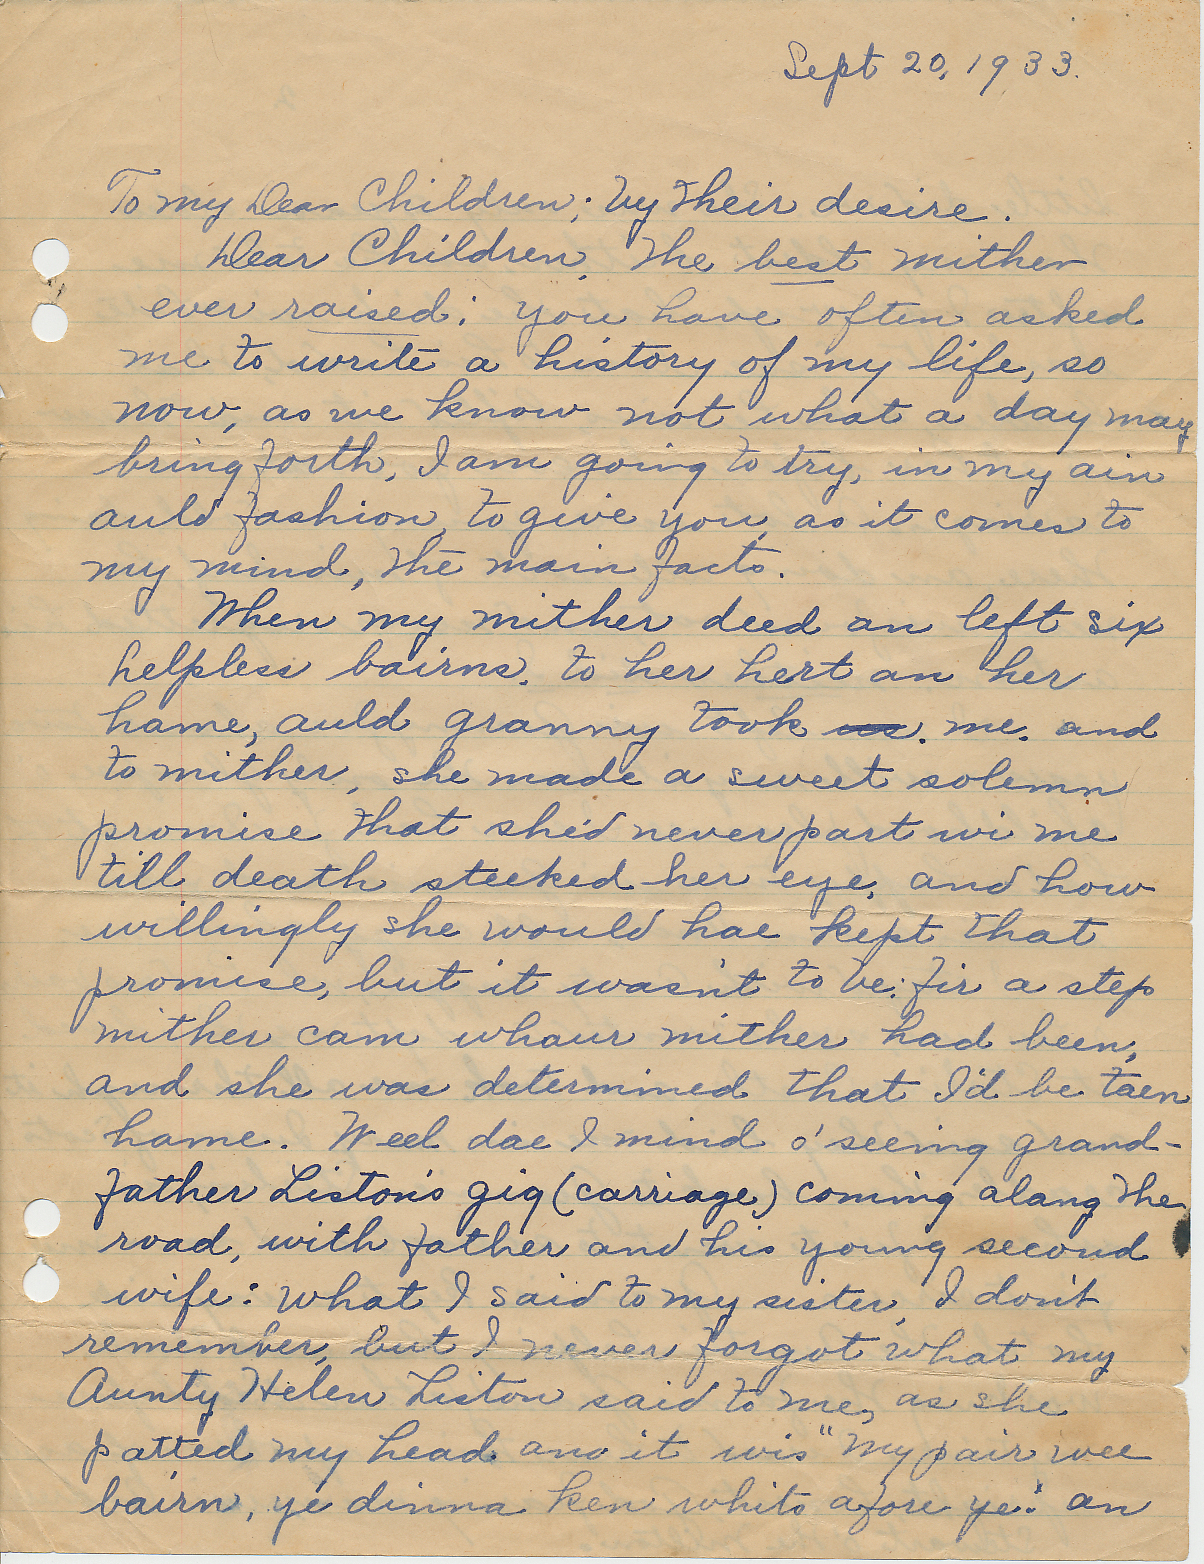 Sept 20, 1933.
To my Dear Children; by their desire.
Dear Children, The best mither
ever raised; you have often asked
me to write a history of my life, so
now, as we know not what a day may
bring forth, I am going to try, in my ain
auld fashion, to give you, as it comes to
my mind, the main facts.
When my mither deed an left six
helpless bairns, to her hert an her
hame, auld granny took us. me. and
to mither, she made a sweet solemn
promise that she'd never part wi me
till death steeked her eye, and how
willingly she would hae kept that
promise, but it wasn't to be: fir a step
mither cam whaur mither had been,
and she was determined that I'd be taen
hame. Weel dae I mind o' seeing grand-
father Liston's gig (carriage) coming alang the
road, with father and his young second
wife: what I said to my sister, I don't
remember, but I never forgot what my
Aunty Helen Liston said to me, as she
patted my head and it wis "My pair wee
bairn, ye dinna ken whits afore ye". an